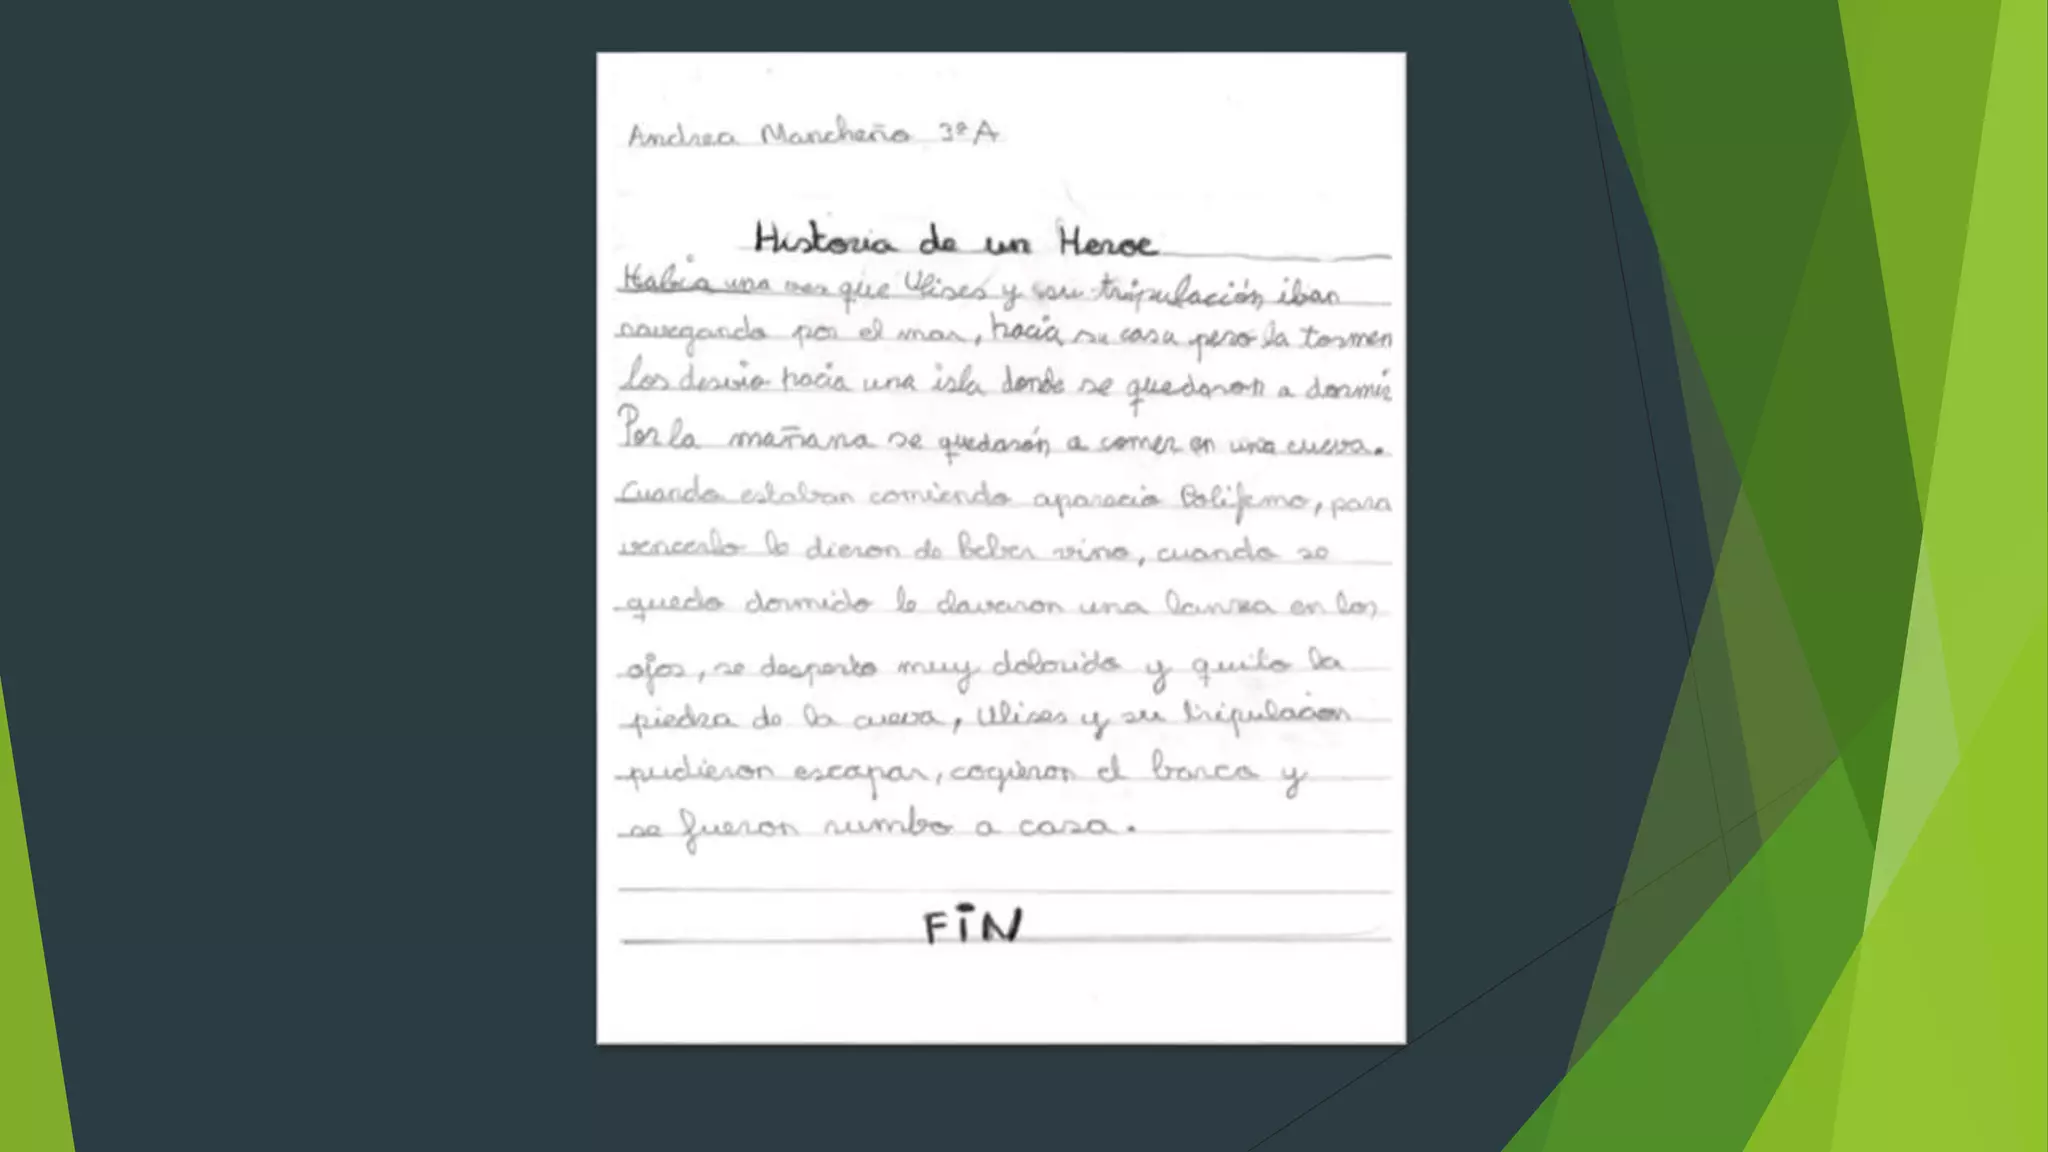 Andrea Mancheño 3ºA
Historia de un Heroe
Había una vez que Ulises y su tripulación, iban
navegando por el mar, hacia su casa pero la tormen
los desvio hacia una isla donde se quedaron a dormir
Por la mañana se quedarón a comer en una cueva.
Cuando estaban comiendo aparecio Polifemo, para
vencerlo le dieron de beber vino, cuando se
quedo dormido le clavaron una lanza en los
ojos, se desperto muy dolorido y quito la
piedra de la cueva, Ulises y su tripulacion
pudieron escapar, cogieron el barco y
se fueron rumbo a casa.
FIN